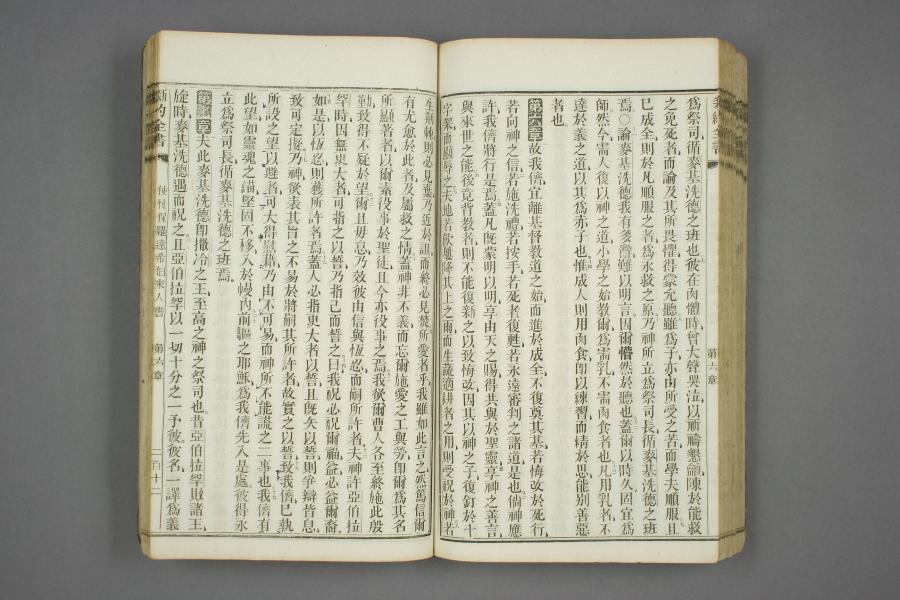 新約全書
第六章
爲祭司循麥基洗德之班也彼在肉體時曾大聲哭泣以祈禱懇籲陳於能救
之免死者而論及其所畏懼得蒙允聽雖爲子亦由所受之苦而學夫順服且
已成全則於凡順服之者爲永救之原乃神所立爲祭司長循麥基洗德之班
焉○論麥基洗德我有多難以明言因爾懵然於聽也蓋爾以時久固宜爲
師然今需人復以神之道小學之始教爾爲需乳不需肉食者也凡用乳者不
達於義之道以其爲赤子也惟成人則用肉食卽以練習而精於思能別善惡
者也
第六章故我儕宜離基督教道之始而進於成全不復奠其基若悔改於死行
若向神之信若施洗禮若按手若死者復甦若永遠審判之諸道是也倘神應
許我儕將行是焉蓋凡既蒙明以明享由天之賜得共與於聖靈享神之善言
與來世之能後竟背教者則不能復新之以致悔改因其以神之子復釘於十
字架而顯辱之夫地若飲屢降其上之雨而生蔬適耕者之用則受祝於神若
生荊棘則必見棄乃近於詛而終必見焚所愛者乎我雖如此言之然篤信爾
有尤愈於此者及屬救之情蓋神非不義而忘爾施愛之工與勞卽爾爲其名
所顯著者以爾素役事於聖徒且今亦役事之焉我欲爾曹人各至終施此殷
勤致得不疑於望爾且毋怠乃效彼由信與恆忍而嗣所許者夫神許亞伯拉
罕時因無更大者可指之以誓乃指己而誓之曰我必祝爾福益必益爾裔
如是以恆忍則獲所許者焉蓋人必指更大者以誓且既矢以誓則爭辯皆息
致可定擬乃神欲表其旨之不易於將嗣其所許者故實之以誓致我儕已執
所設之望以避者可大得慰藉乃由不可易而神所不能謊之二事也我儕有
此望如靈魂之錨堅固不移入於幔内前驅之耶穌爲我儕先入是處彼得永
立爲祭司長循麥基洗德之班焉
第七章夫此麥基洗德卽撒冷之王至高之神之祭司也昔亞伯拉罕敗諸王
旋時麥基洗德遇而祝之且亞伯拉罕以一切十分之一予彼彼名一譯爲義
新約全書
使徒保羅達希伯來人書
第六章
二百十二